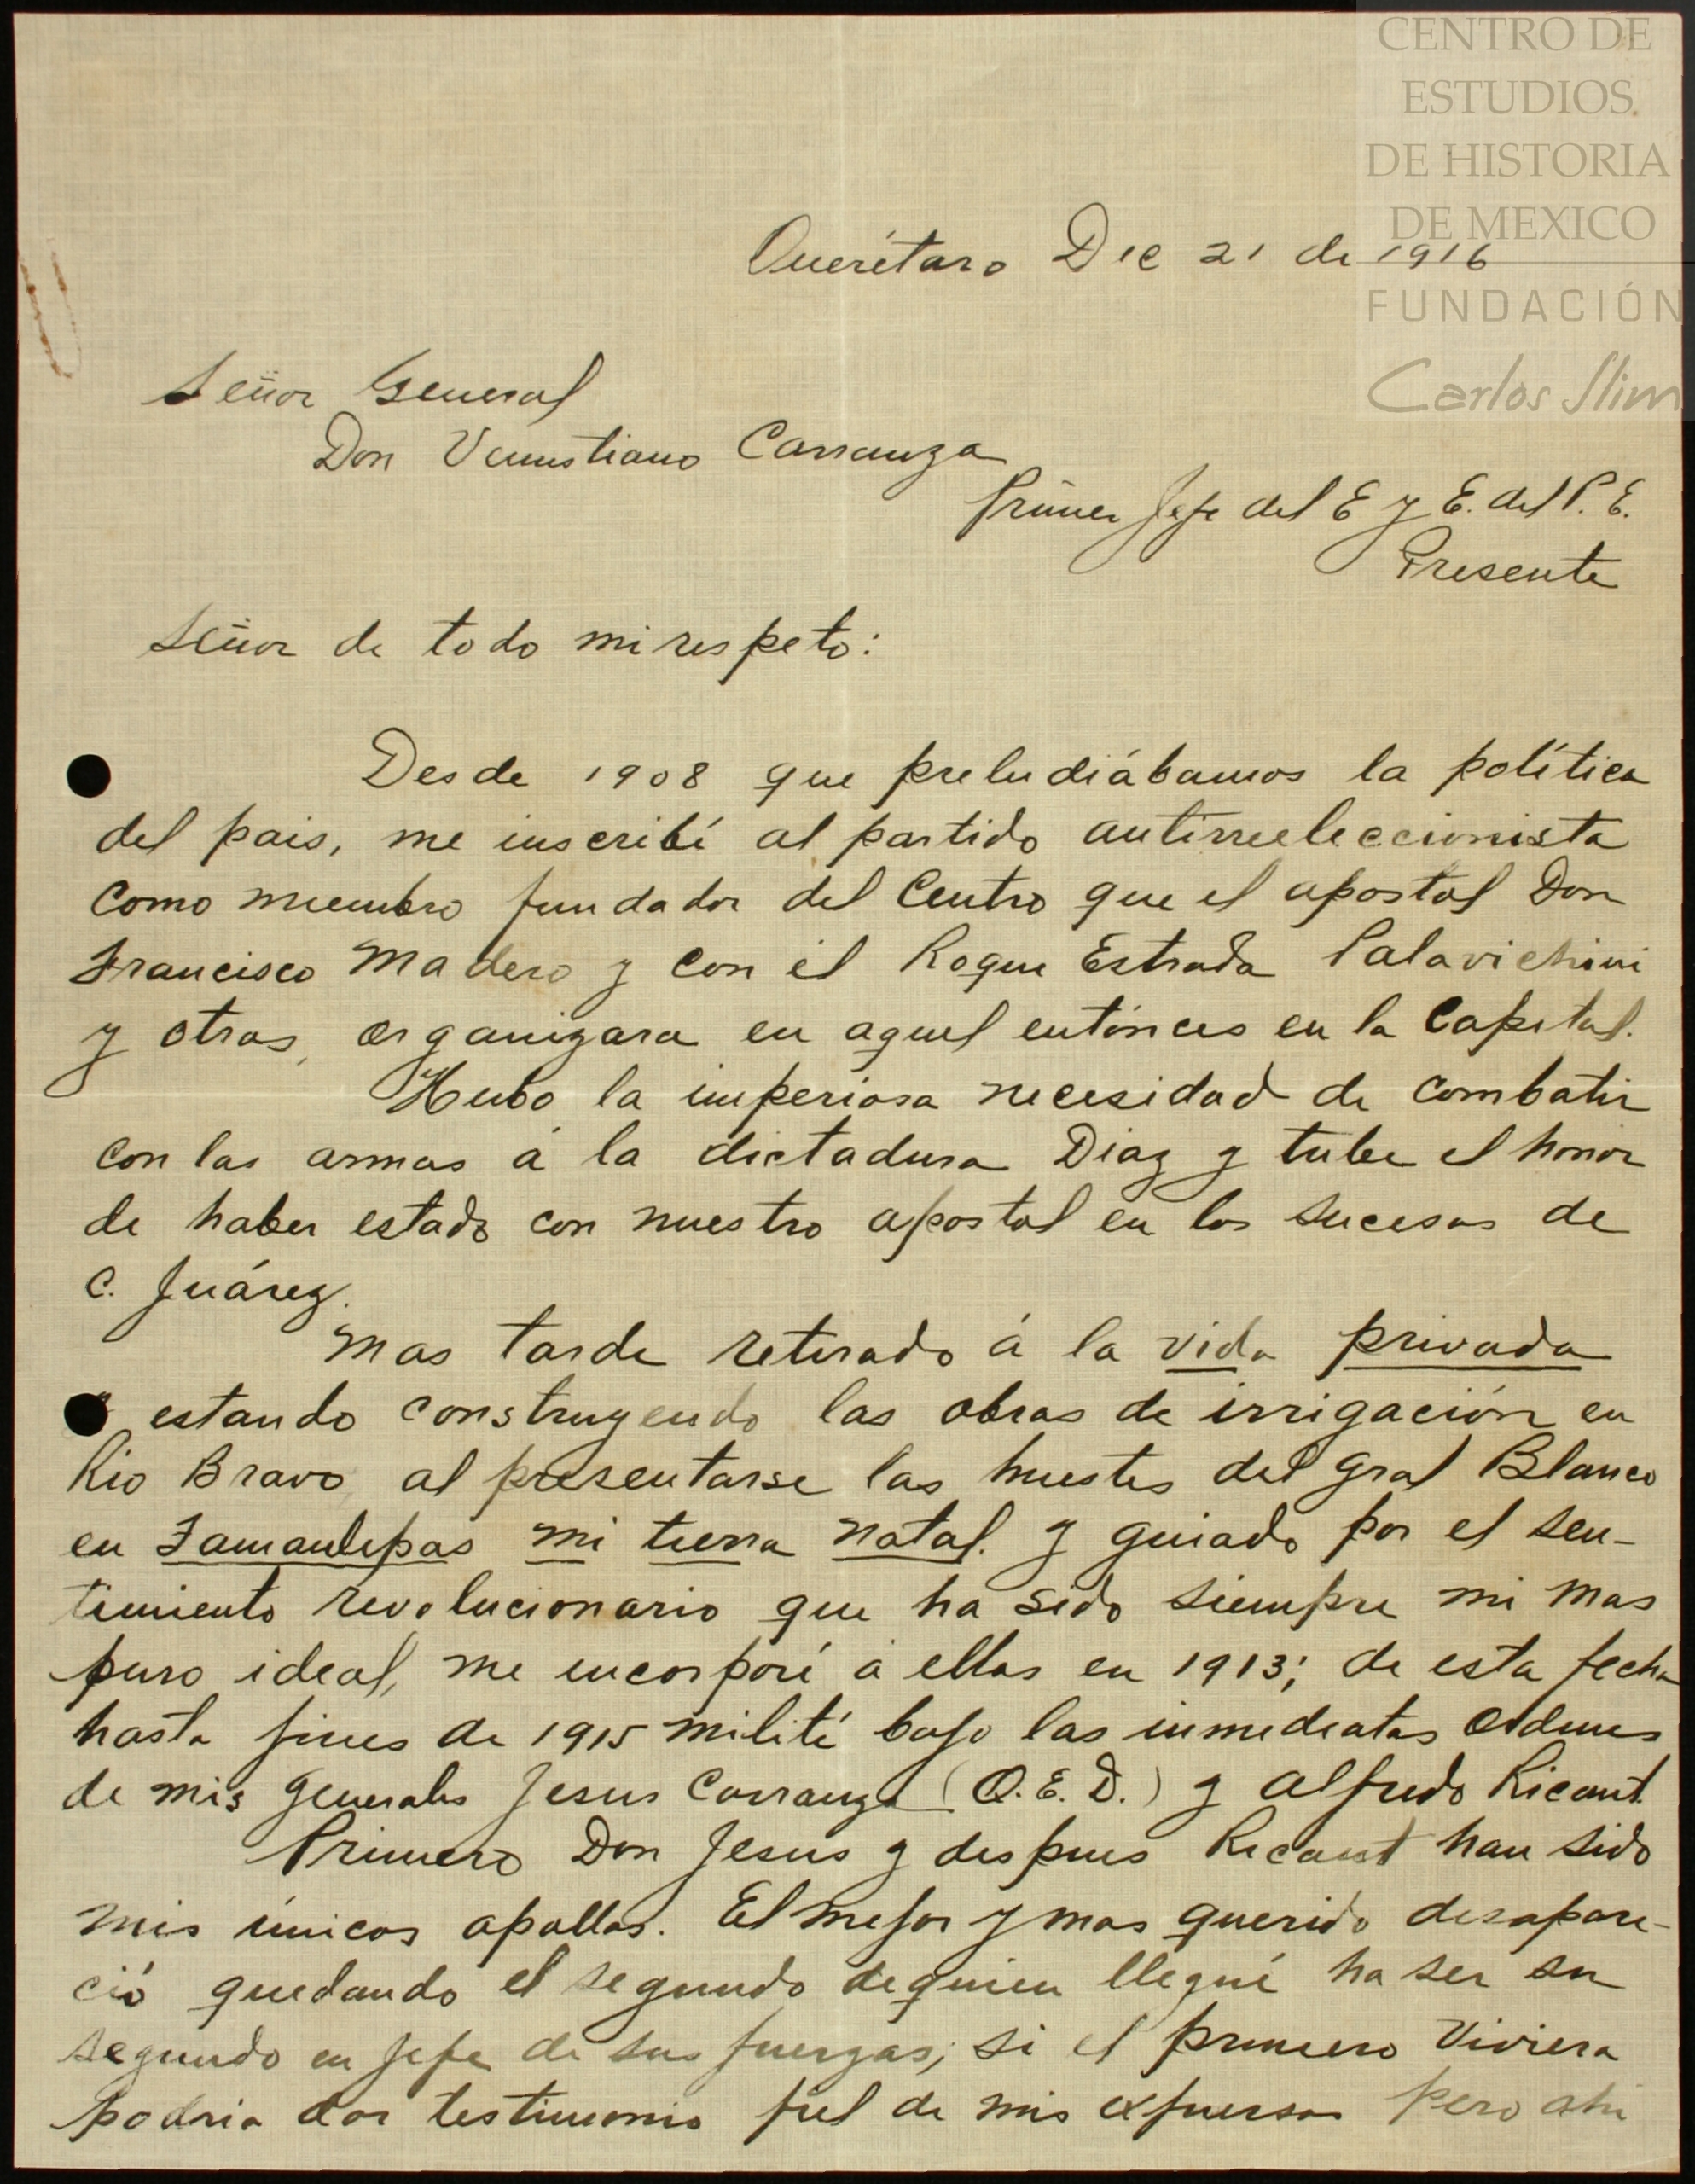 CENTRO DE
ESTUDIOS
DE HISTORIA
DE MEXICO
FUNDACIÓN
Carlos Slim
Querétaro Dic 21 de 1916
Señor General
Don Venustiano Carranza
Primer Jefe del E y E. del P. E.
Presente
Señor de todo mi respeto:
Desde 1908 que preludiábamos la política
del pais, me inscribí al partido antirreeleccionista
como miembro fundador del Centro que el apostol Don
Francisco Madero y con él Roque Estrada Palavichini
y otros, organizara en aquel entónces en la Capital.
Hubo la imperiosa necesidad de combatir
con las armas á la dictadura Diaz y tube el honor
de haber estado con nuestro apostol en los sucesos de
C. Juárez.
Mas tarde retirado á la vida privada
estando construyendo las obras de irrigación en
Rio Bravo al presentarse las huestes del Gral Blanco
en Tamaulipas mi tierra natal. y guiado por el sen-
timiento revolucionario que ha sido siempre mi mas
puro ideal, me incorporé á ellas en 1913; de esta fecha
hasta fines de 1915 milité bajo las inmediatas ordenes
de mis Generales Jesus Carranza (Q.E.D.) y Alfredo Ricaut.
Primero Don Jesus y despues Ricaut han sido
mis únicos apollos. El mejor y mas querido desapare-
ció quedando el segundo de quien llegué ha ser su
segundo en Jefe de sus fuerzas; si el primero viviera
podria dar testimonio fiel de mis exfuersos pero ahi